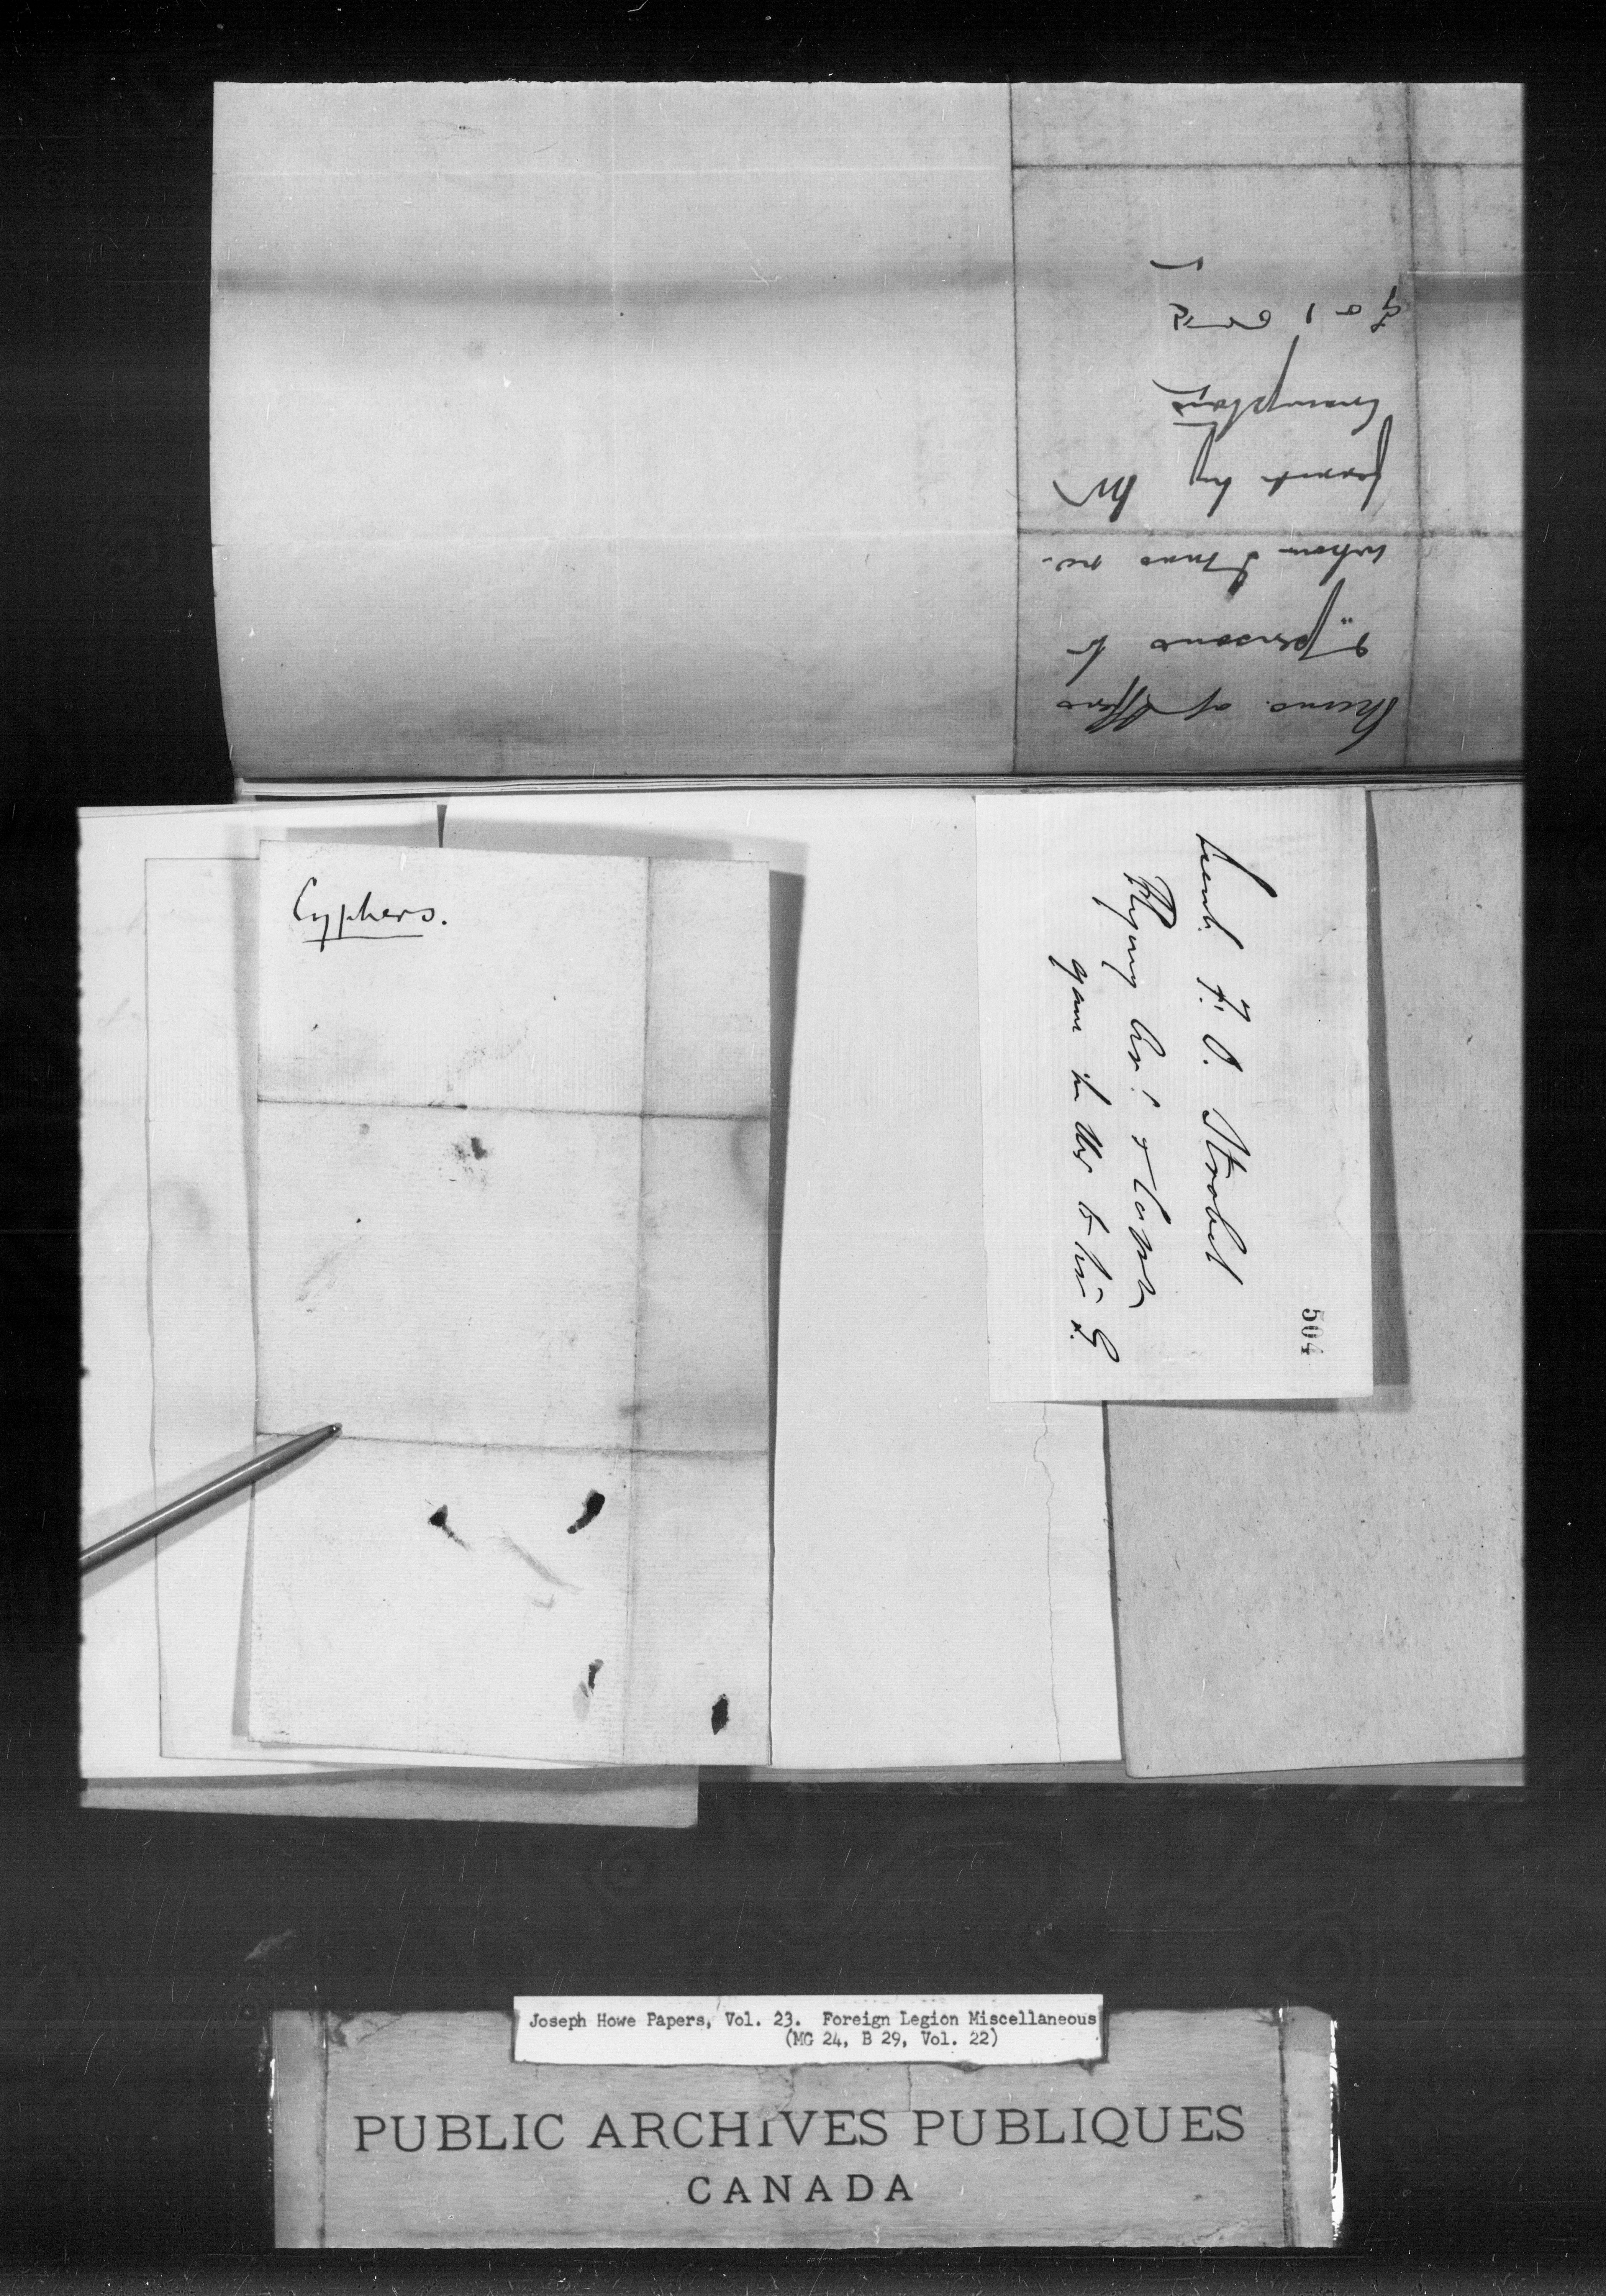 Memo. of offers
& persons to
whom I was re-
ferred by Mr
Crampton
Cyphers.
504
Lieut. F. O. Strobel
gave the to his
Joseph Howe Papers, Vol. 23. Foreign Legion Miscellaneous
(MG 24, B 29, Vol. 22)
PUBLIC ARCHIVES PUBLIQUES
CANADA